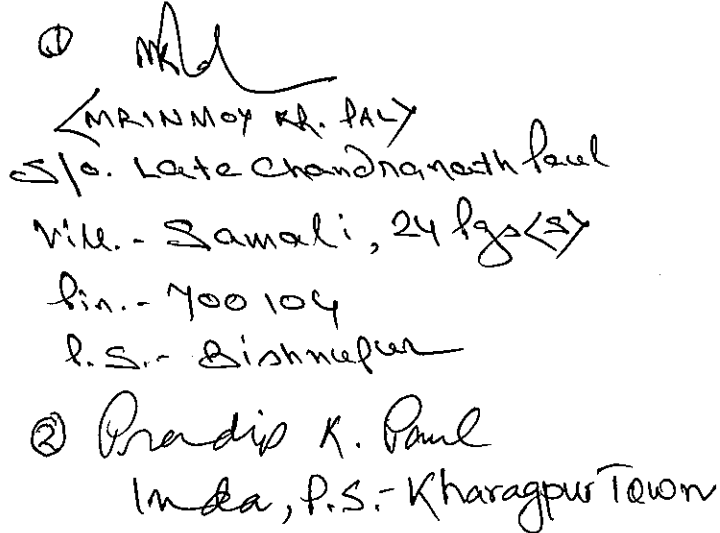 ①
(MRINMOY KR. PAL)
S/o. Late Chandranath Paul
Vill. - Samali, 24 Pgs(S)
Pin. - 700104
P.S. - Bishnupur
② Pradip K. Paul
Inda, P.S. - Kharagpur Town